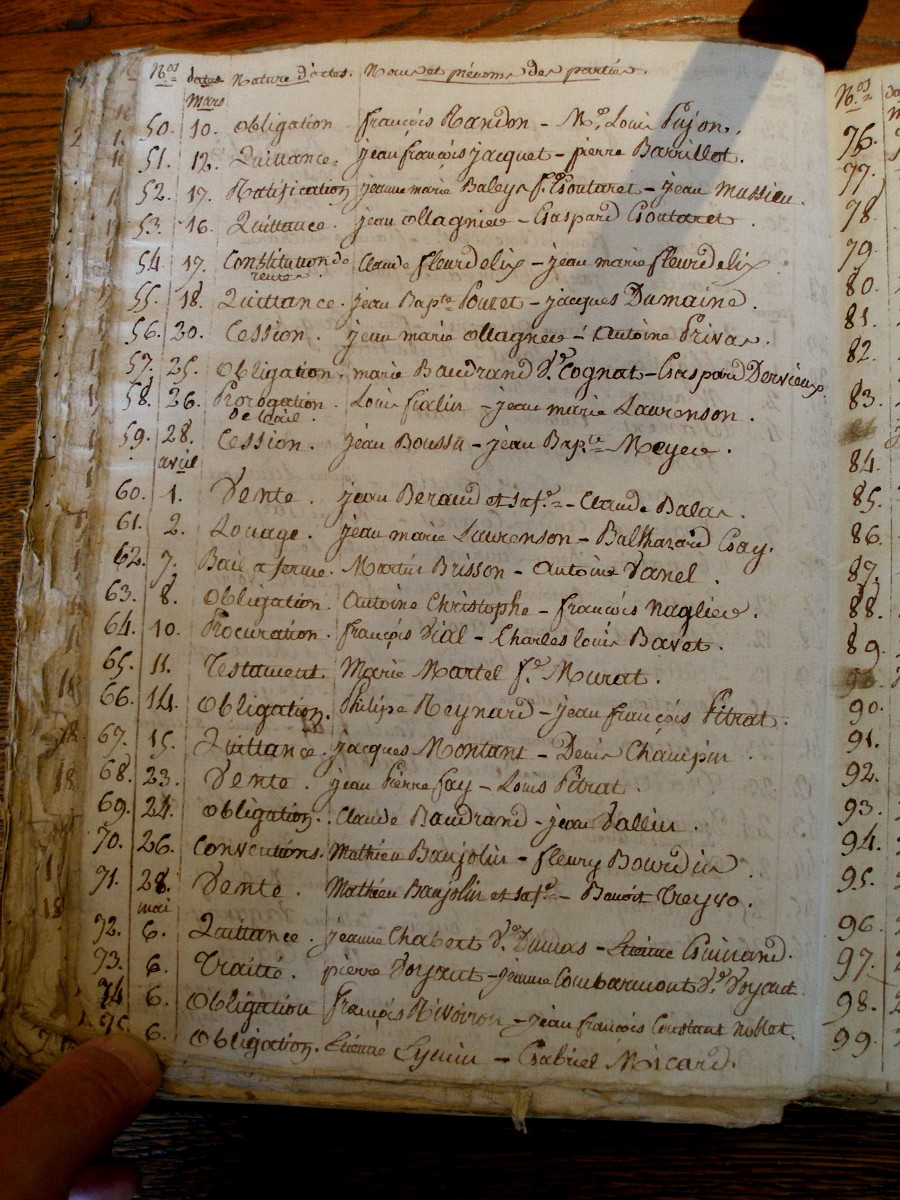 Nos dates Nature d'actes. Noms et prénoms des parties.
Mars
50. 10. Obligation françois Randon - Me. Louis Pujon.
51. 12. Quittance. jean françois jacquet - pierre Barrillot.
52. 17. Ratification jeanne marie Baleys fe. Goutaret - jean
53. 16. Quittance. jean ollagnier - Gaspard Goutaret
54. 17. Constitution de Claude fleurdelix - jean marie fleurdelix
rente.
55. 18. Quittance. jean Bapte. - jacques Dumaine.
56. 20. Cession. jean marie ollagnier - Antoine Privas.
57. 25. Obligation. marie Baudrand Ve. Cognat - Gaspard Dervieux
58. 26. Prorogation Louis fialin - jean marie Laurenson.
De
59. 28. Cession. jean Boussu - jean Bapte. Meyer.
avril
60. 1. Vente. jean Beraud et sa fe. - Claude Balas.
61. 2. Louage. jean marie Laurenson - Balthazard Gay.
62. 7. Bail a ferme. Martin Brisson - Antoine Vanel.
63. 8. Obligation. Antoine Christophe - françois naglier.
64. 10. Procuration. françois Vial - Charles louis Bavet.
65. 11. Testament. Marie Martel fe. Murat.
66. 14. Obligation. Philipe Reynard - jean françois Pitrat.
67. 15. Quittance. jacques Montant - Denis Champin.
68. 23. Vente. jean Pierre fay - Louis Pitrat.
69. 24. Obligation. Claude Baudrand - jean Vallin.
70. 26. Conventions. Mathieu Baujolin - fleury Bourdin
71. 28. Vente. Mathieu Baujolin et sa fe. - Benoit Treyvo.
mai
72. 6. Quittance. jeanne Chabert Ve. Dumas - Etienne Guinand.
73. 6. Traitté. pierre Voyant - jeanne Combarmont Ve. Voyant
74 6. Obligation françois Rivoiron - jean françois Constant noblet.
75. 6. Obligation. Etienne - Gabriel Micard.
Nos
76.
77.
78.
79.
80.
81.
82.
83.
84.
85.
86.
87.
88.
89.
90.
91.
92.
93.
94.
95.
96.
97.
98.
99.